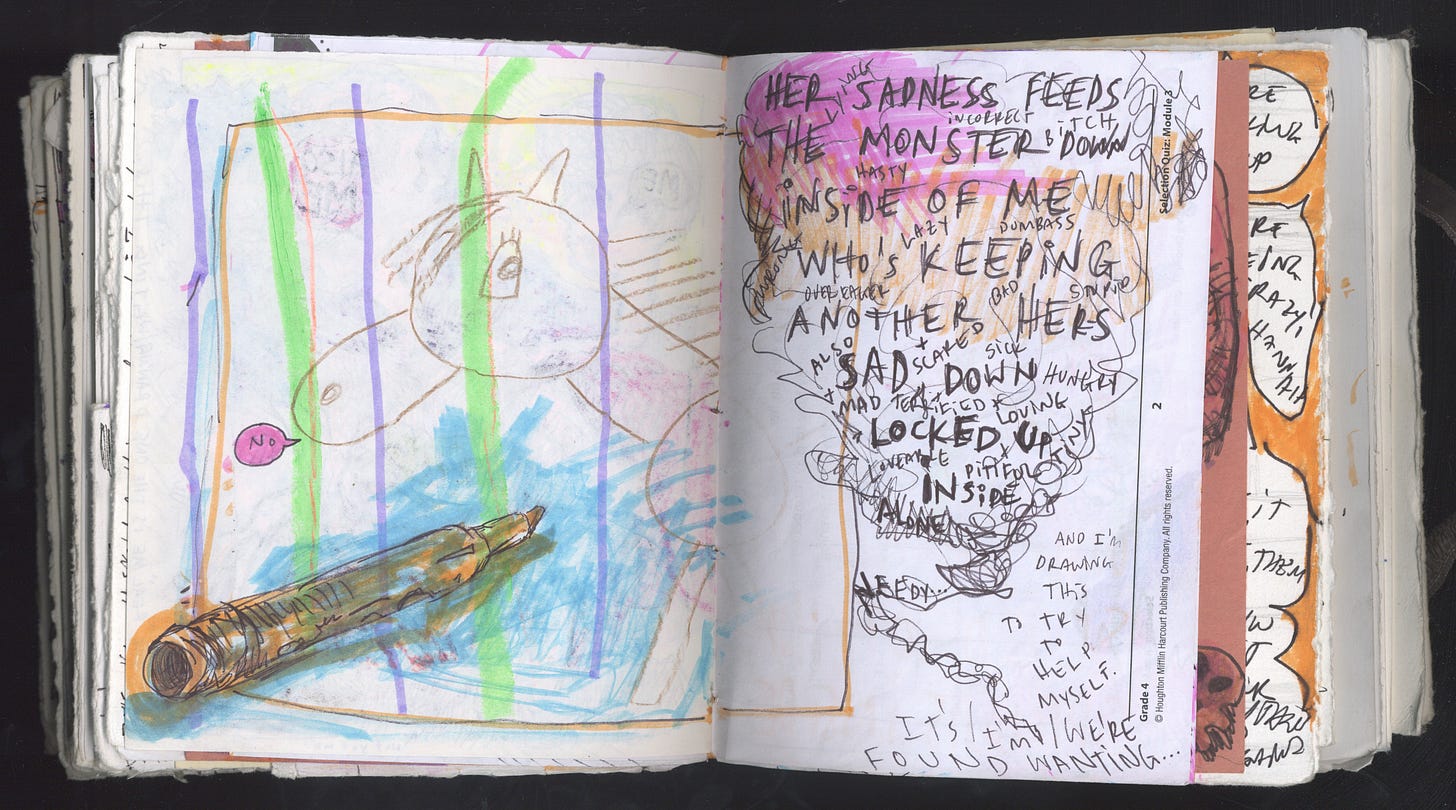 NO
HER LYING SADNESS FEEDS
INCORRECT BITCH
THE MONSTER DOWN
HASTY
INSIDE OF ME
LAZY DUMBASS
WHO'S KEEPING
OVEREAGER BAD STUPID
ANOTHER, HERS
ALSO + SCARED SICK
SAD + DOWN HUNGRY
+ MAD TERRIFIED + LOVING
LOCKED UP
PITIFUL
INSIDE
ALONE
NEEDY...
AND I'M
DRAWING
THIS
TO TRY
TO
HELP
MYSELF.
IT'S/I'M/WE'RE
FOUND WANTING...
Selection Quiz: Module 3
2
Grade 4
© Houghton Mifflin Harcourt Publishing Company. All rights reserved.
RE
UP
RE
EING
RAZY,
HANN
AH
IT
THEM